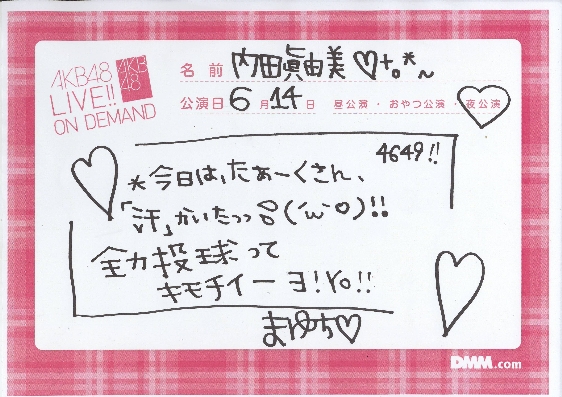 AKB48
LIVE!!
ON DEMAND
AKB
48
名前 内田眞由美♡+。*~
公演日 6月14日 昼公演・おやつ公演・夜公演
4649!!
*今日は、たぁーくさん、
「汗」かいたっっ(´ω`○)!!
全力投球って
キモチイーヨ!Yo!!
まゆち♡
DMM.com